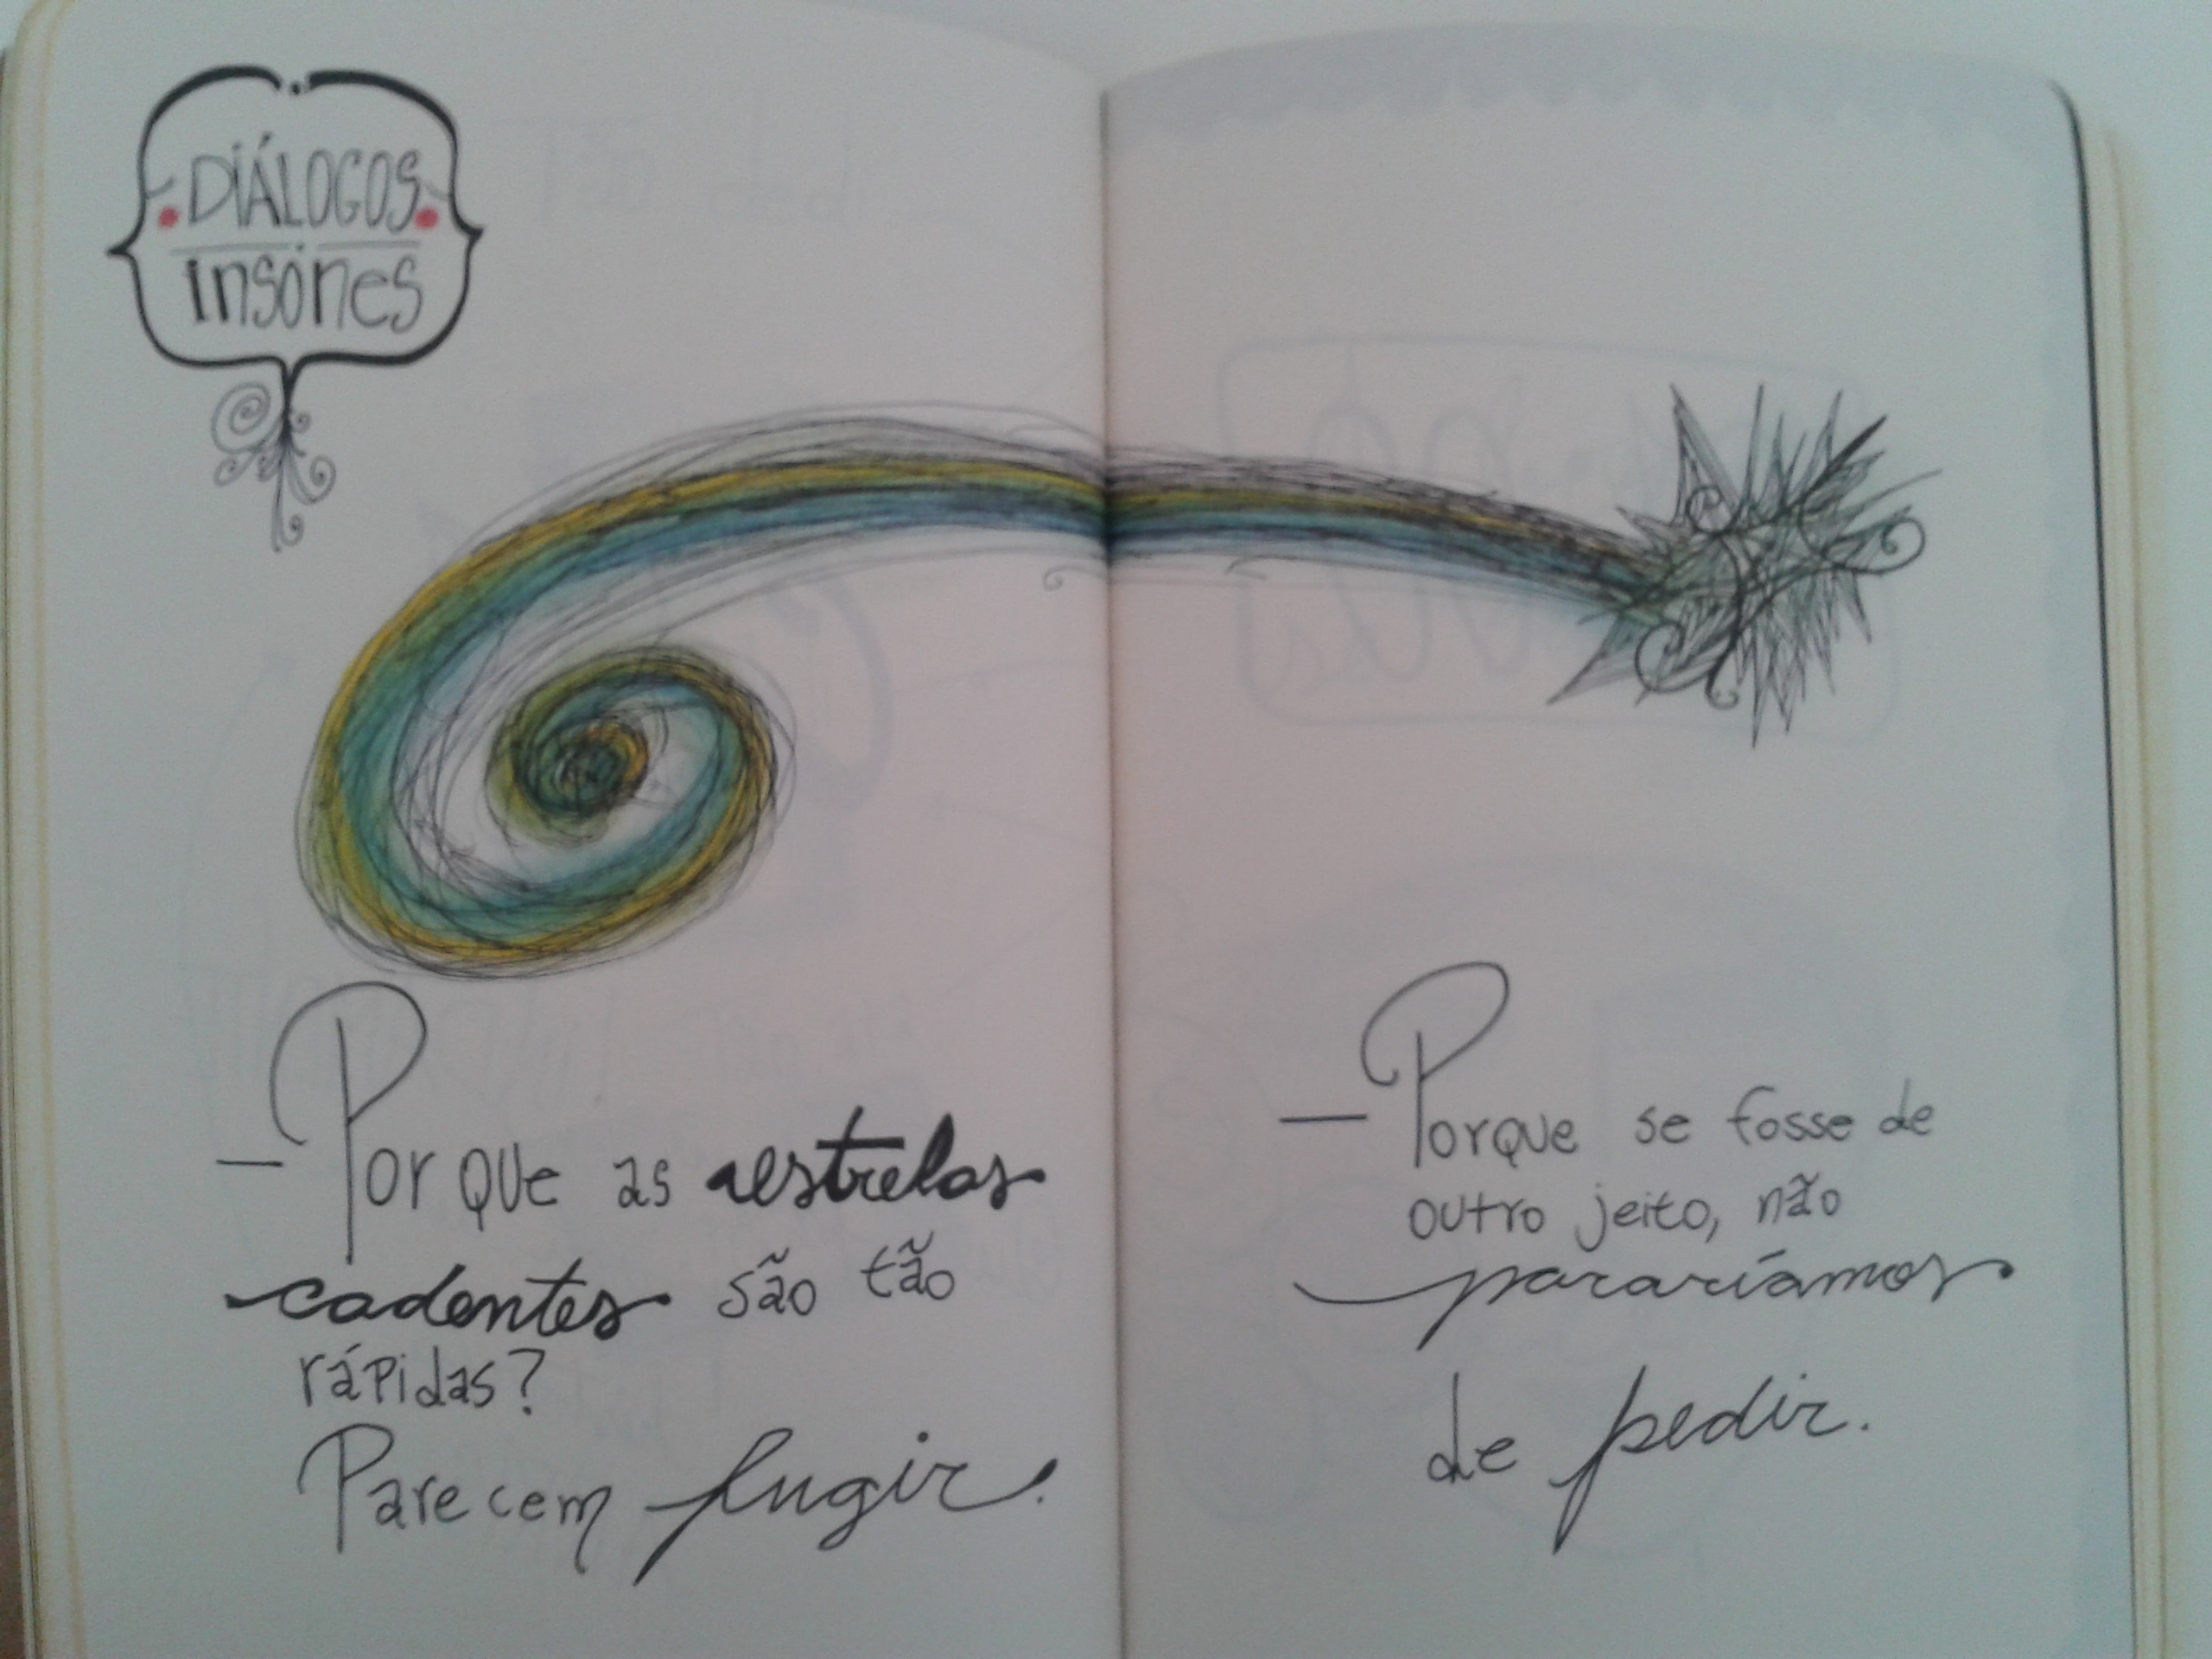 DIÁLOGOS
insones
— Por que as estrelas
cadentes são tão
rápidas?
Parecem fugir.
— Porque se fosse de
outro jeito, não
pararíamos
de pedir.